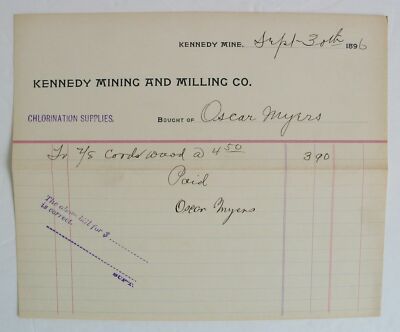 KENNEDY MINE. Sept 30th 1896
KENNEDY MINING AND MILLING CO.
CHLORINATION SUPPLIES. BOUGHT OF Oscar Myers
To 7/8 Cords wood @ 4 50 3 90
Paid
Oscar Myers
The above bill for $
is correct.
SUPT.